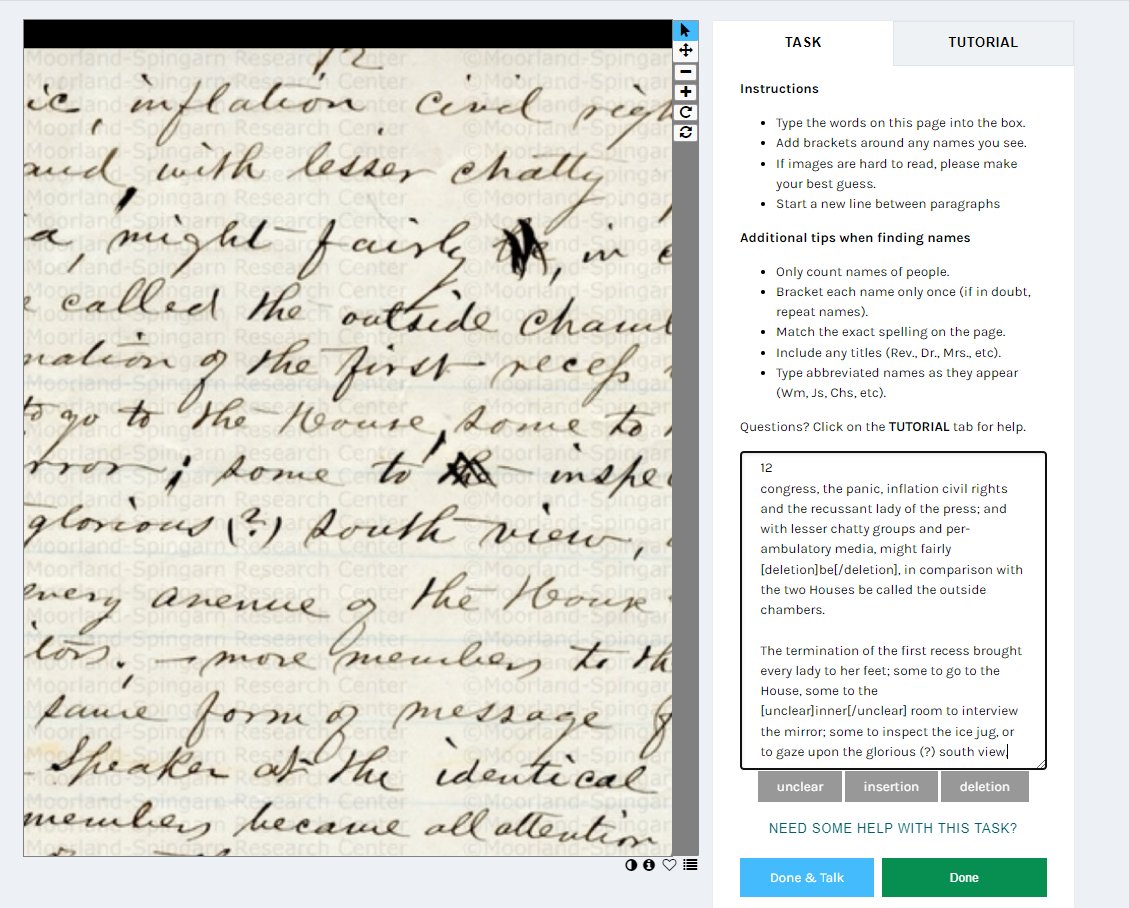 Moorland-Spingarn Research Center ©Moorland-Spingar
12
ic, inflation civil righ
and, with lesser chatty
a, might fairly be, in c
e called the outside chamb
nation of the first recess
to go to the House, some to
rror; some to the inspec
glorious (?) south view,
every avenue of the House
tors. — more members to th
same form of message f
Speaker at the identical
members became all attention
TASK
TUTORIAL
Instructions
• Type the words on this page into the box.
• Add brackets around any names you see.
• If images are hard to read, please make
your best guess.
• Start a new line between paragraphs
Additional tips when finding names
• Only count names of people.
• Bracket each name only once (if in doubt,
repeat names).
• Match the exact spelling on the page.
• Include any titles (Rev., Dr., Mrs., etc).
• Type abbreviated names as they appear
(Wm, Js, Chs, etc).
Questions? Click on the TUTORIAL tab for help.
12
congress, the panic, inflation civil rights
and the recussant lady of the press; and
with lesser chatty groups and per-
ambulatory media, might fairly
[deletion]be[/deletion], in comparison with
the two Houses be called the outside
chambers.
The termination of the first recess brought
every lady to her feet; some to go to the
House, some to the
[unclear]inner[/unclear] room to interview
the mirror; some to inspect the ice jug, or
to gaze upon the glorious (?) south view.
unclear
insertion
deletion
NEED SOME HELP WITH THIS TASK?
Done & Talk
Done